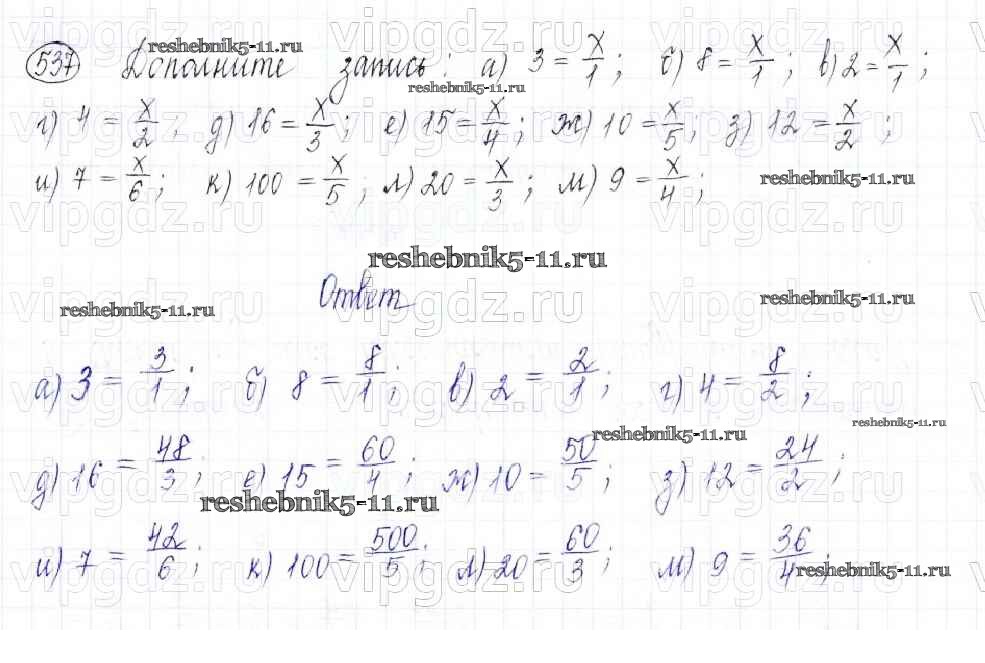 537 Дополните запись: а) 3 = x/1; б) 8 = x/1; в) 2 = x/1;
г) 4 = x/2; д) 16 = x/3; е) 15 = x/4; ж) 10 = x/5; з) 12 = x/2;
и) 7 = x/6; к) 100 = x/5; л) 20 = x/3; м) 9 = x/4;
Ответ
а) 3 = 3/1; б) 8 = 8/1; в) 2 = 2/1; г) 4 = 8/2;
д) 16 = 48/3; е) 15 = 60/4; ж) 10 = 50/5; з) 12 = 24/2;
и) 7 = 42/6; к) 100 = 500/5; л) 20 = 60/3; м) 9 = 36/4;
reshebnik5-11.ru
vipgdz.ru